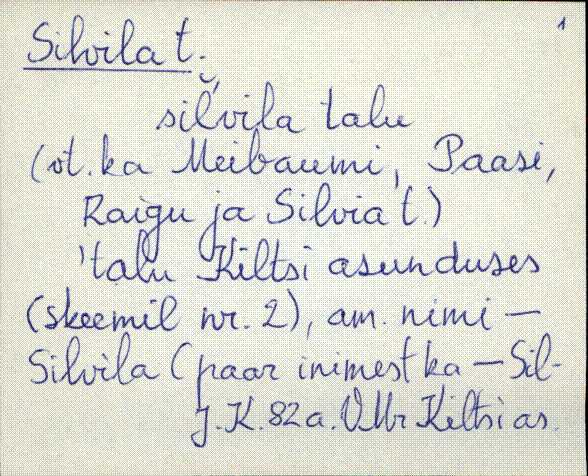 1
Silvila t.
silvila talu
(vt. ka Meibaumi, Paasi,
Raigu ja Silvia t.)
'talu Kiltsi asunduses
(skeemil nr. 2), am. nimi —
Silvila (paar inimest ka — Sil-
J. K. 82 a. VMr Kiltsi as.